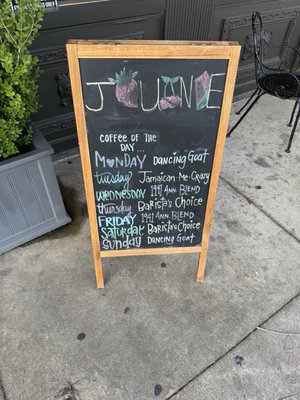 JOUNIE
COFFEE OF THE
DAY...
MONDAY DANCING GOAT
tuesday Jamaican Me Crazy
WEDNESDAY 1941 ANN BLEND
thursday BARISTA'S CHOICE
FRIDAY 1941 ANN BLEND
Saturday BARISTA'S CHOICE
Sunday DANCING GOAT